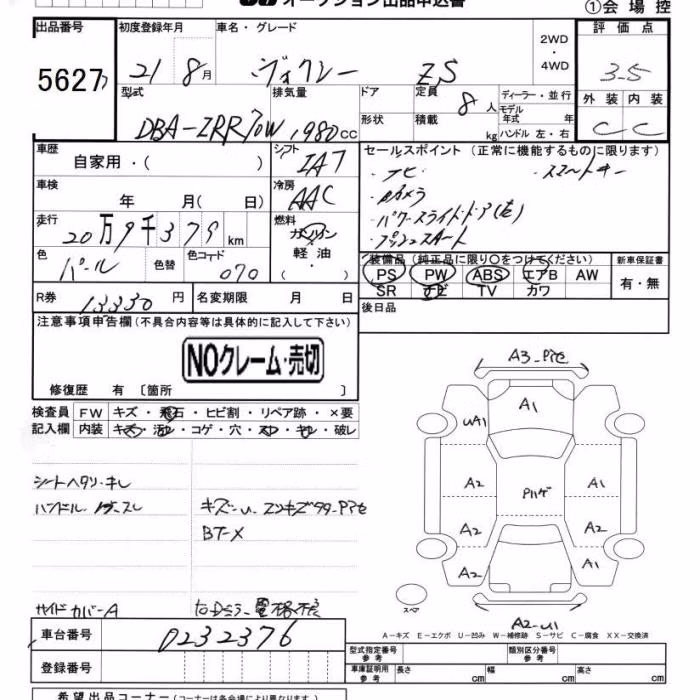 オークション出品申込書
①会場控
出品番号 初度登録年月 車名・グレード 2WD・4WD 評価点
5627 21 8月 ヴォクシー ZS 3.5
型式 排気量 ドア 定員 8人 ディーラー・並行 外装 内装
DBA-ZRR70W 1980cc 形状 積載 kg モデル年式 年 ハンドル 左・右 C C
車歴 自家用・( ) シフト IA7 セールスポイント (正常に機能するものに限ります)
車検 年 月( 日) 冷房 AAC ・ナビ ・スマートキー
・Bカメラ
走行 20万9千379km 燃料 ガソリン 軽油 ・パワースライドドア(左)
・プッシュスタート
色 パール 色替 色コード 070
装備品 (純正品に限り○をつけてください) 新車保証書
PS PW ABS エアB AW 有・無
SR ナビ TV カワ
R券 13330円 名変期限 月 日 後日品
注意事項申告欄(不具合内容等は具体的に記入して下さい)
NOクレーム・売切
修復歴 有 〔箇所 〕
検査員 FW キズ・飛石・ヒビ割・リペア跡・×要
記入欄 内装 キズ・汚れ・コゲ・穴・スレ・キレ・破レ
シートヘタリ・キレ
ハンドル
キズ・U
BT-X
サイドカバーA
A3
A1
UA1
A2 A1
Pハゲ
A2 A2
A2 A1
スペア
A2-U1
A-キズ E-エクボ U-凹み W-補修跡 S-サビ C-腐食 XX-交換済
車台番号 0232376
型式指定番号 参考 類別区分番号 参考
登録番号
車庫証明用 参考 長さ cm 幅 cm 高さ cm
希望出品コーナー(コーナーは各会場により異なります。)